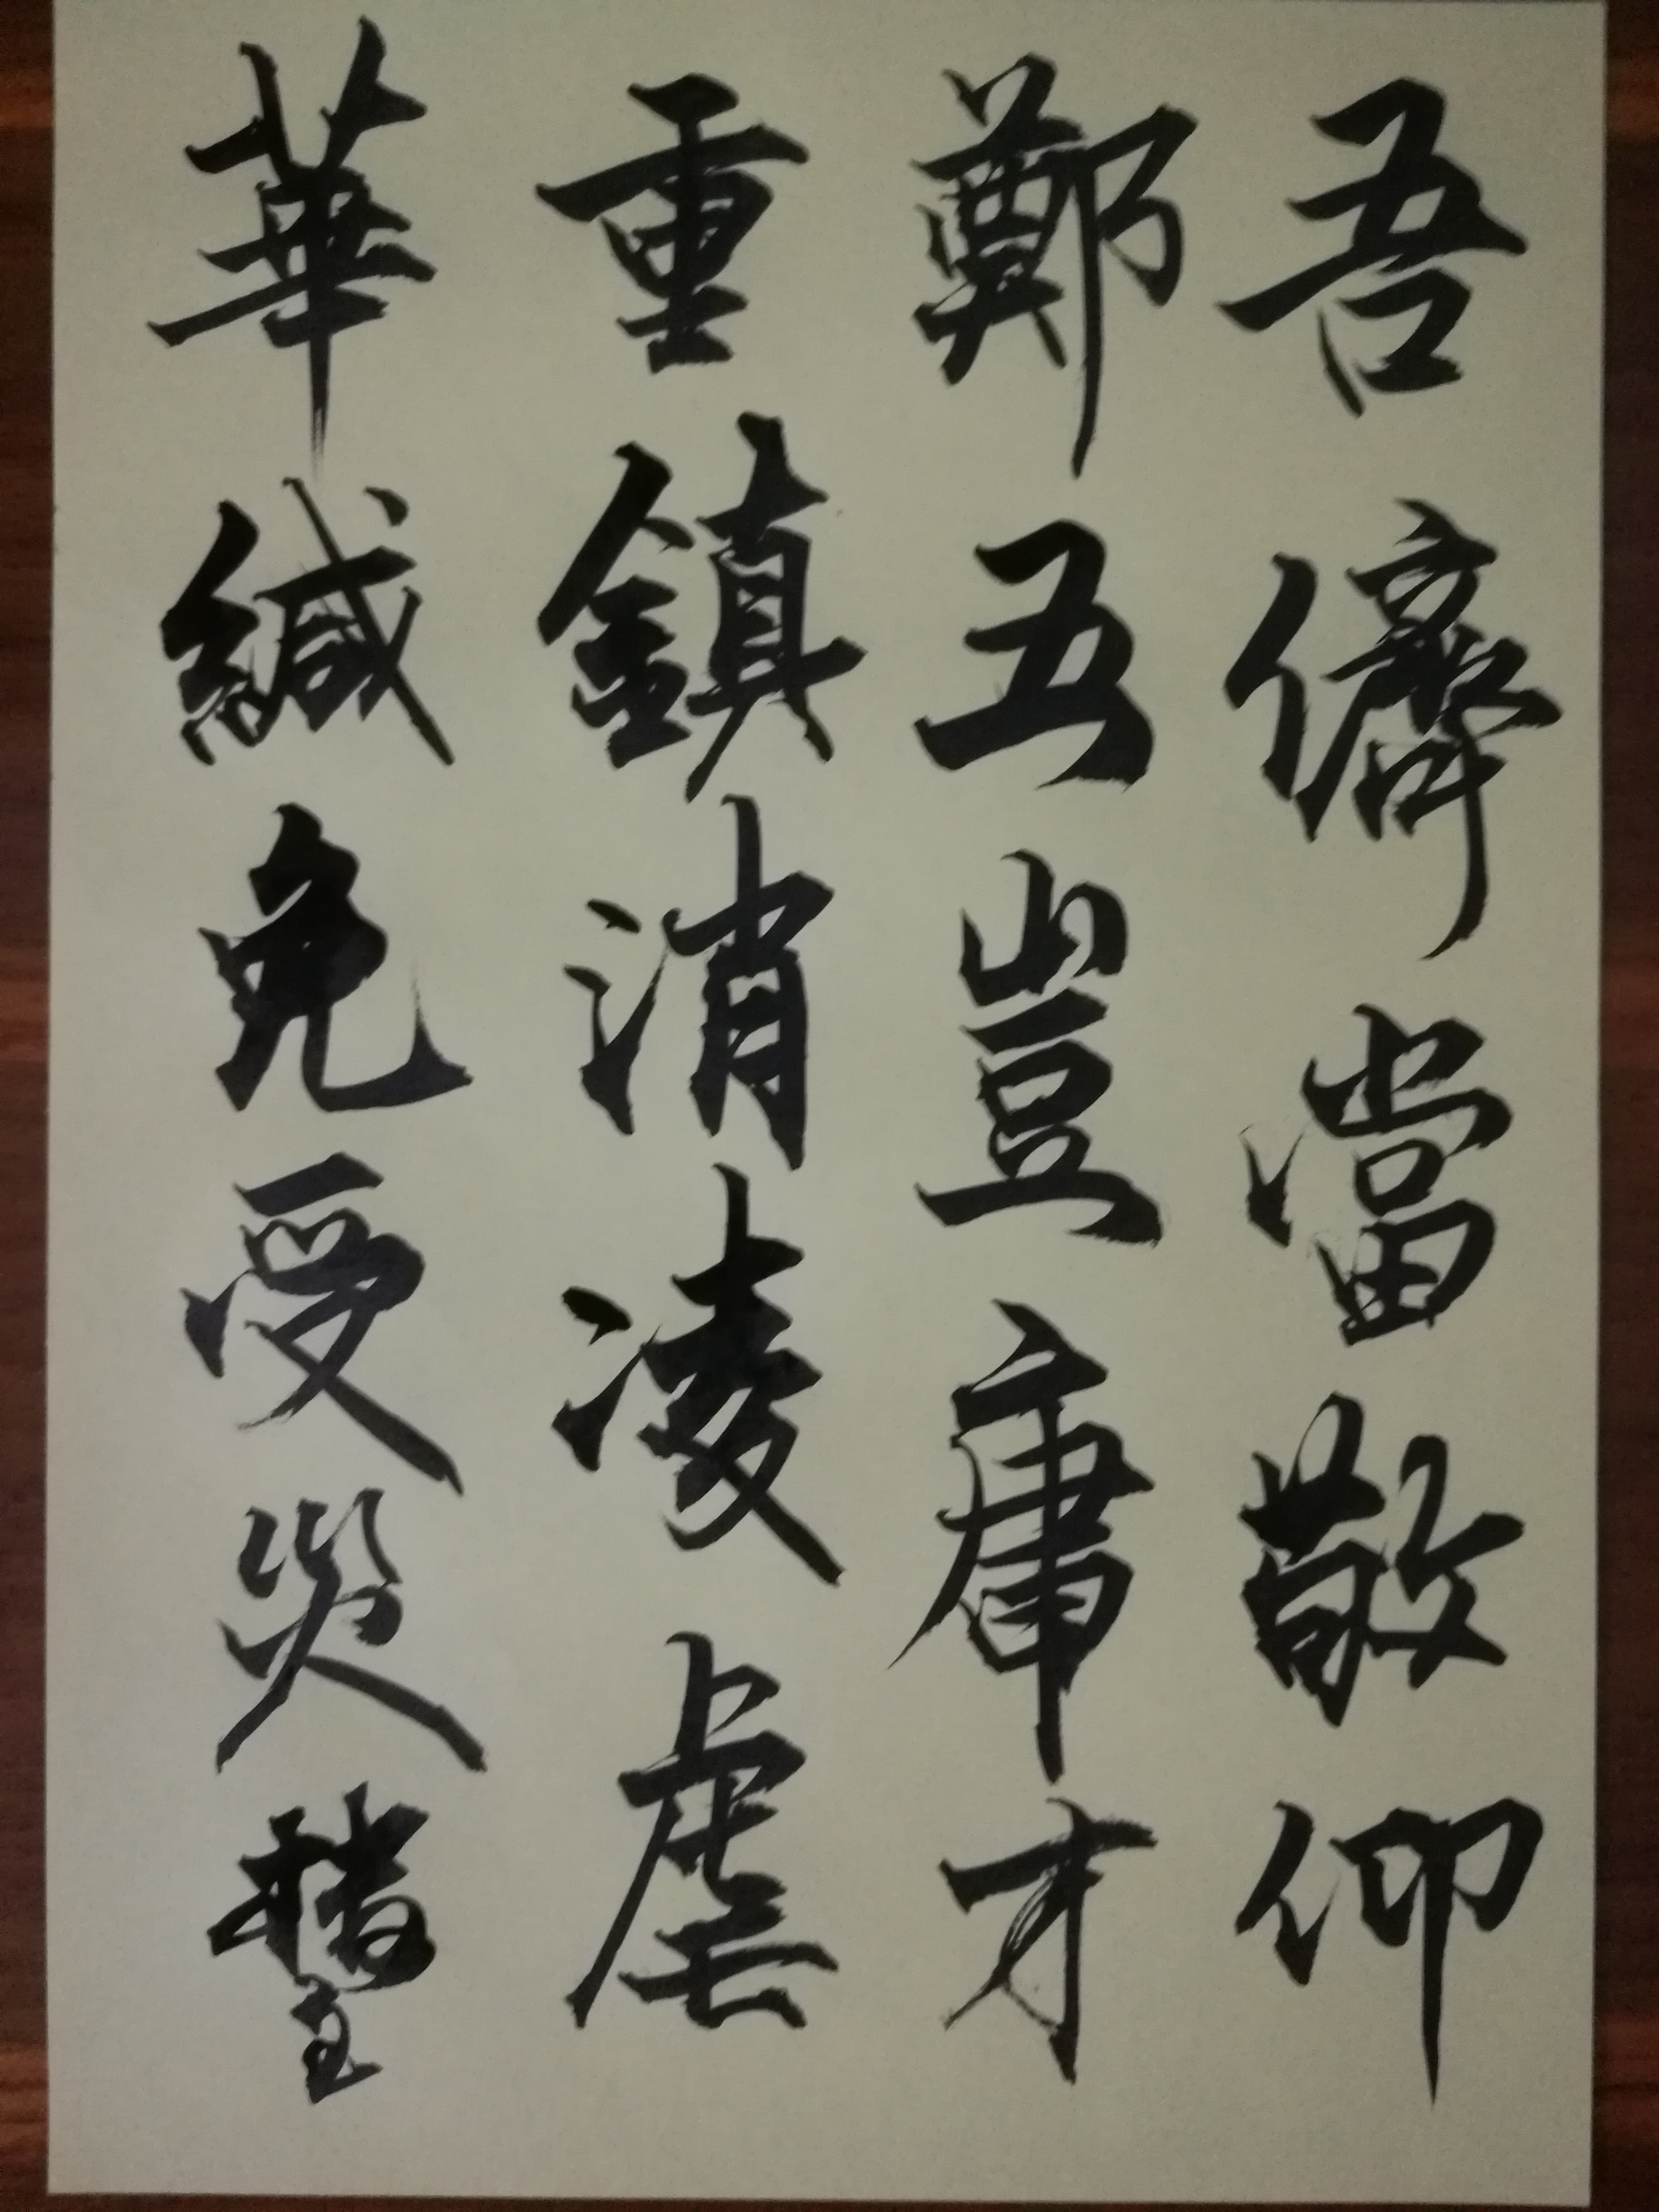 吾儕當敬仰
鄭五豈庸才
重鎮消凌虐
華緘免受災